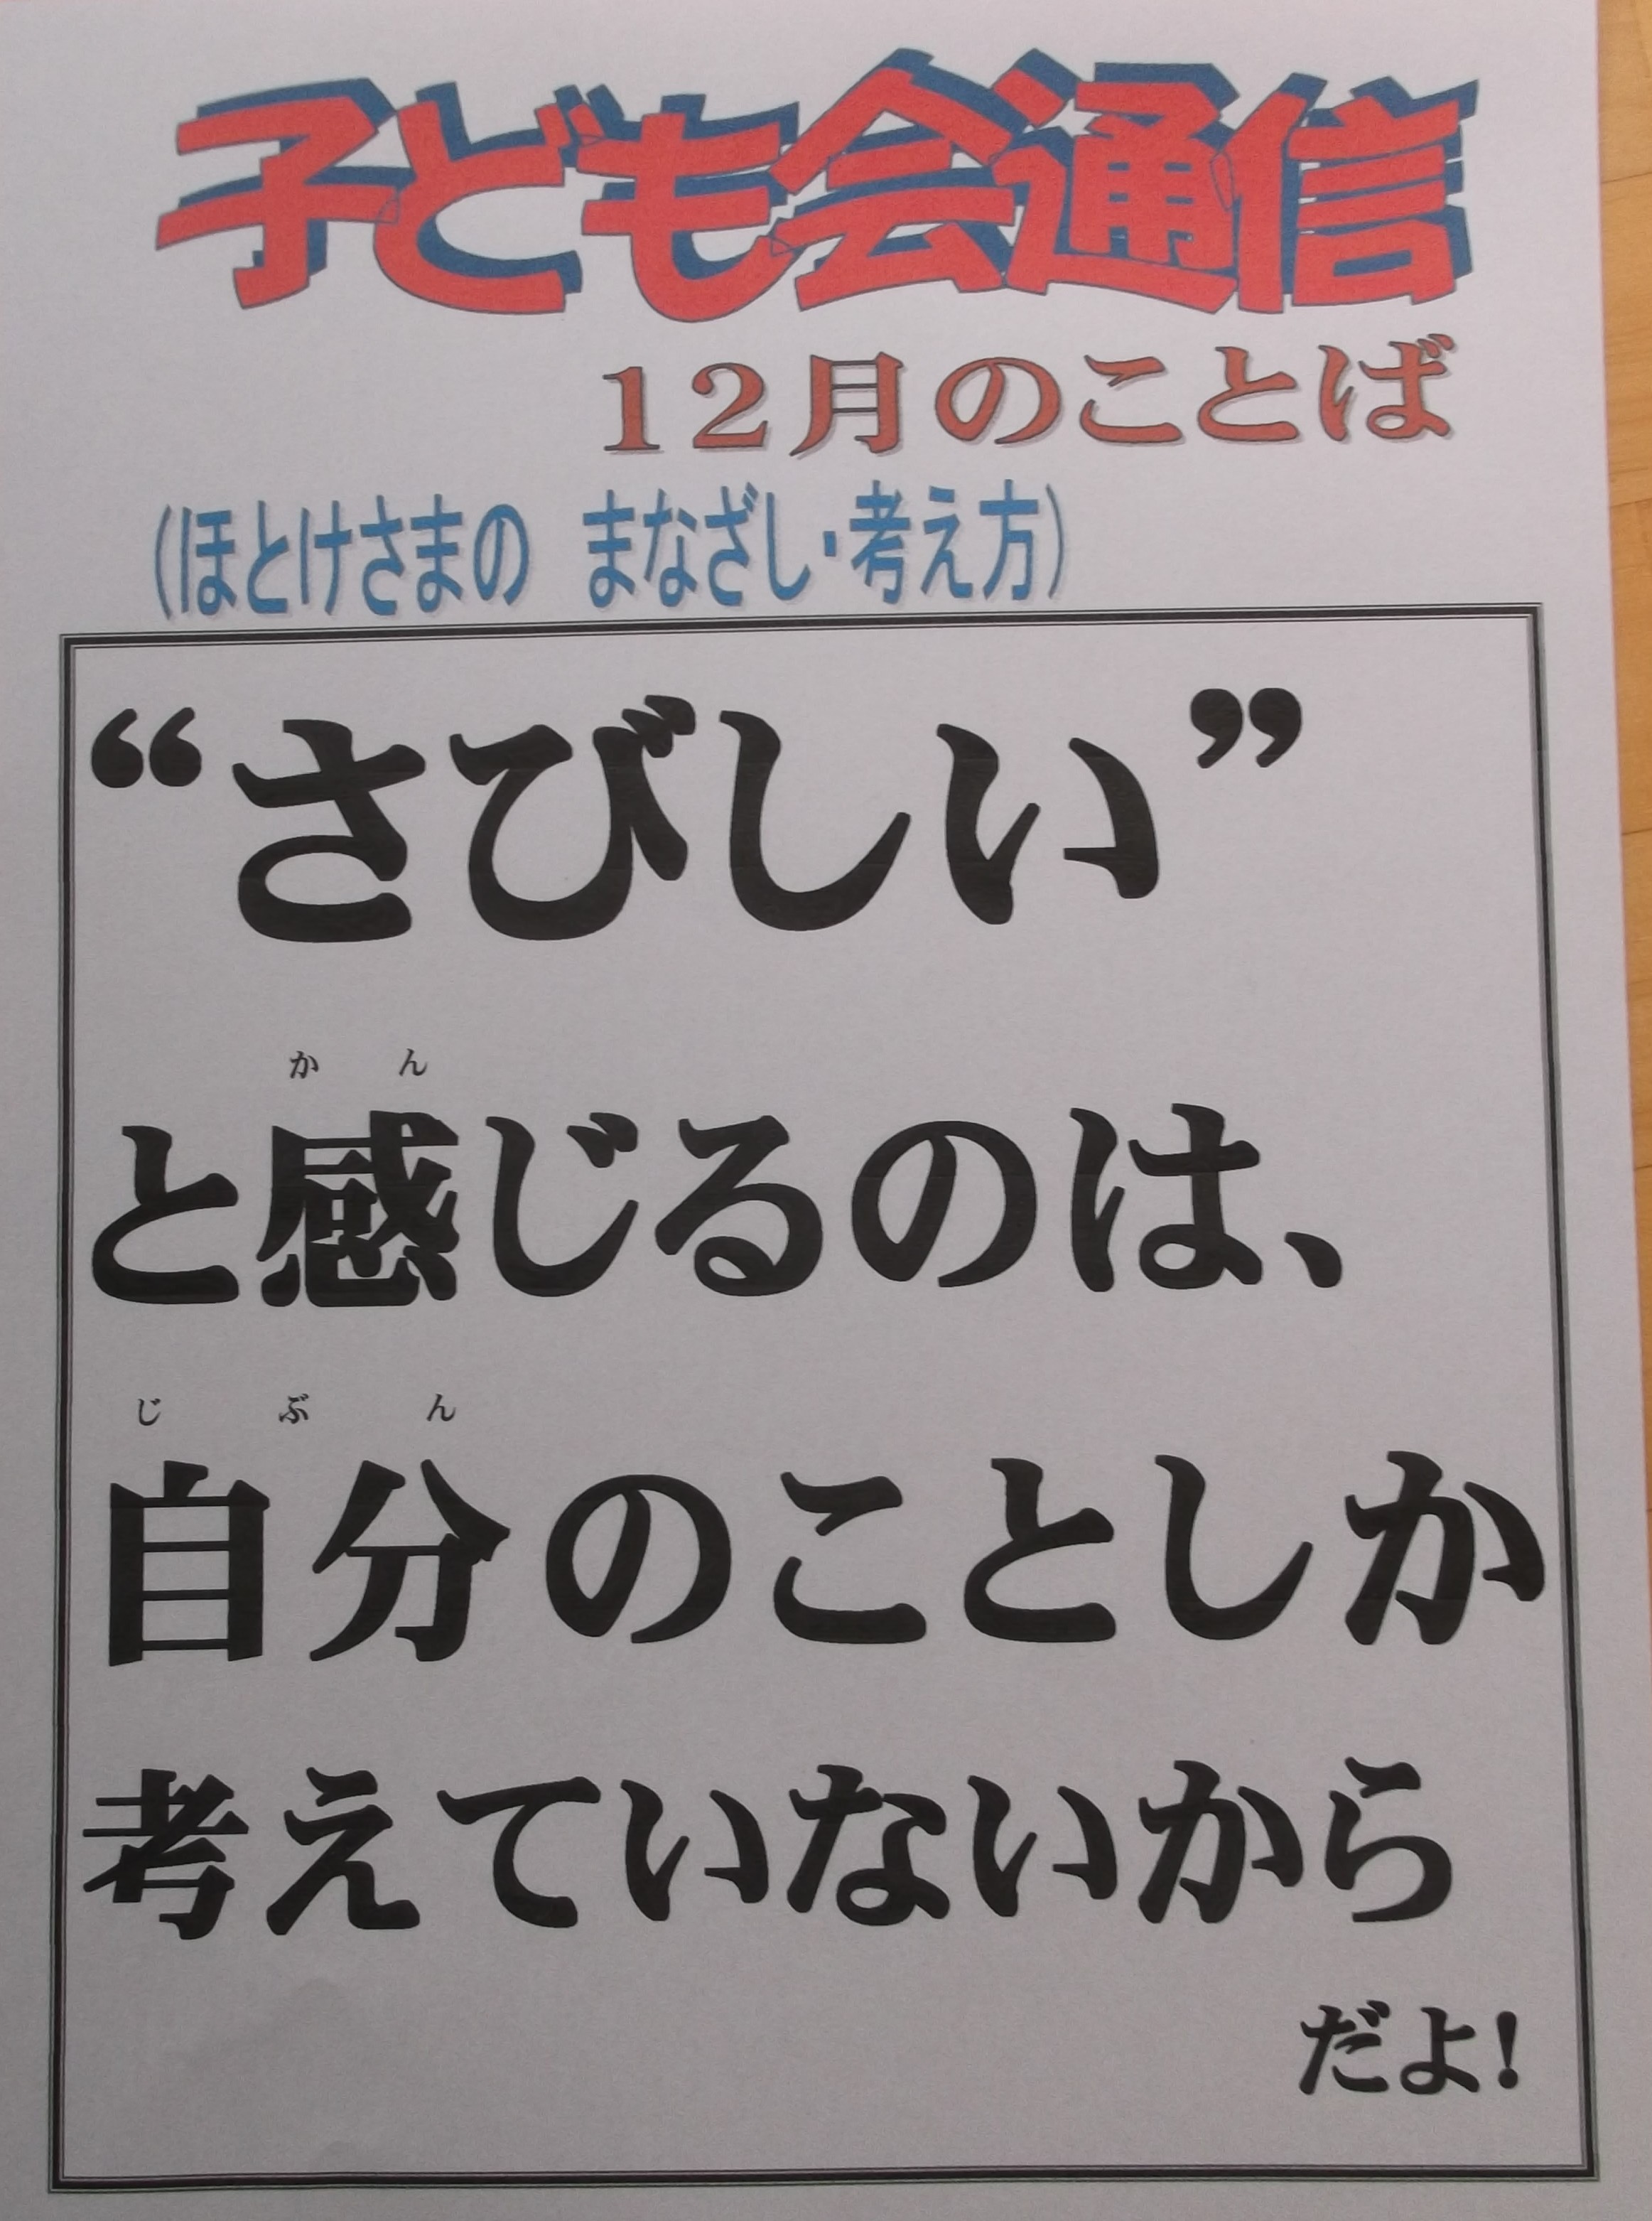 子ども会通信
12月のことば
(ほとけさまの　まなざし・考え方)
“さびしい”
かん
と感じるのは、
じぶん
自分のことしか
考えていないから
だよ!